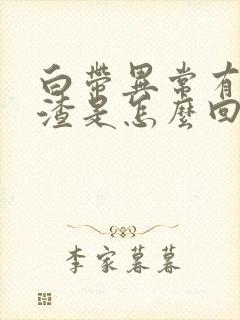 白帶異常有
渣是怎麼回
李家暮暮